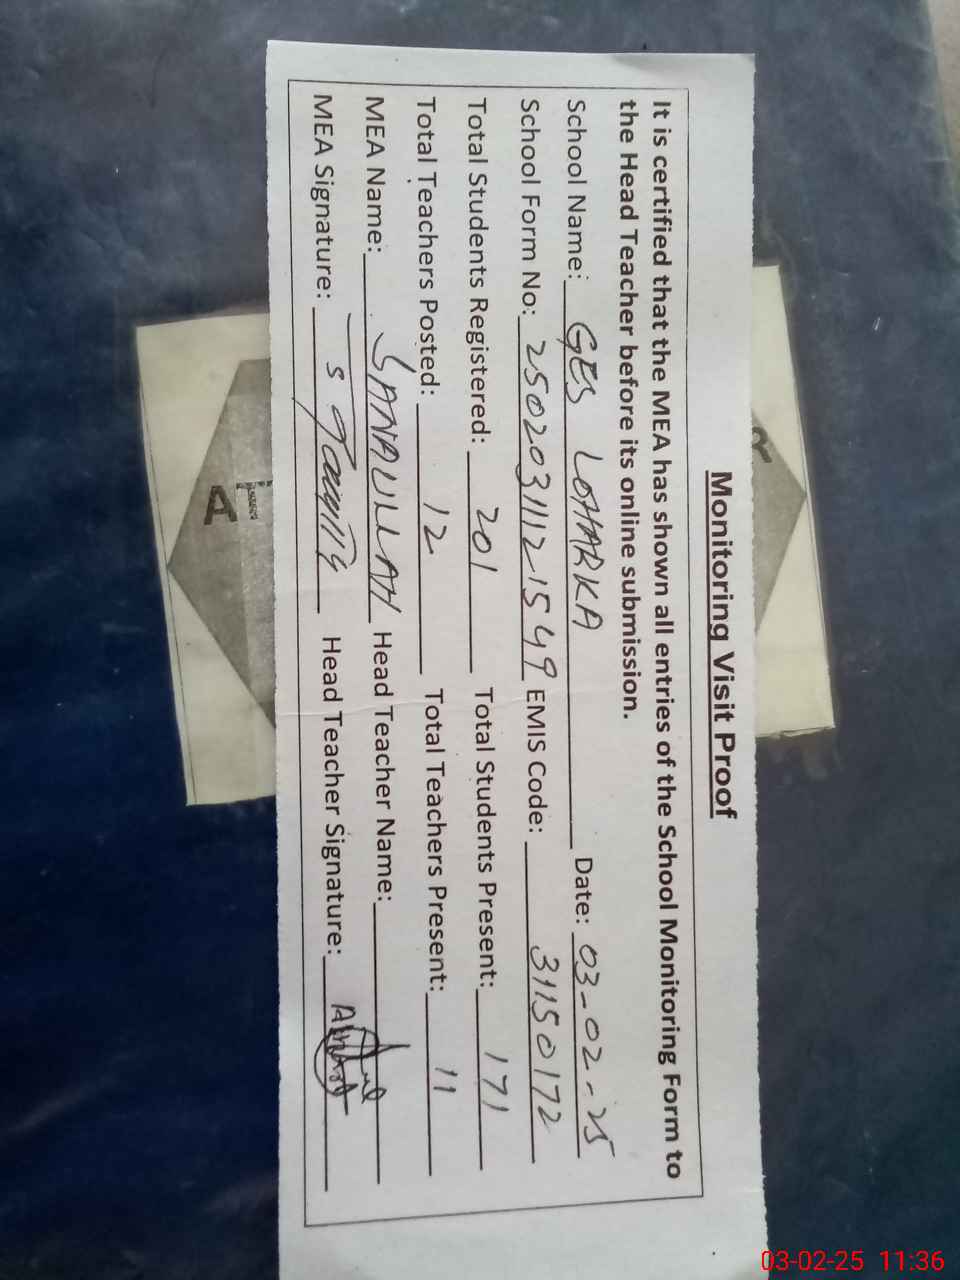 Monitoring Visit Proof
It is certified that the MEA has shown all entries of the School Monitoring Form to
the Head Teacher before its online submission.
School Name: GES LOHARKA Date: 03-02-25
School Form No: 25020311121549 EMIS Code: 31150172
Total Students Registered: 201 Total Students Present: 171
Total Teachers Posted: 12 Total Teachers Present: 11
MEA Name: SANAULLAH Head Teacher Name:
MEA Signature: Head Teacher Signature:
A
03-02-25 11:36